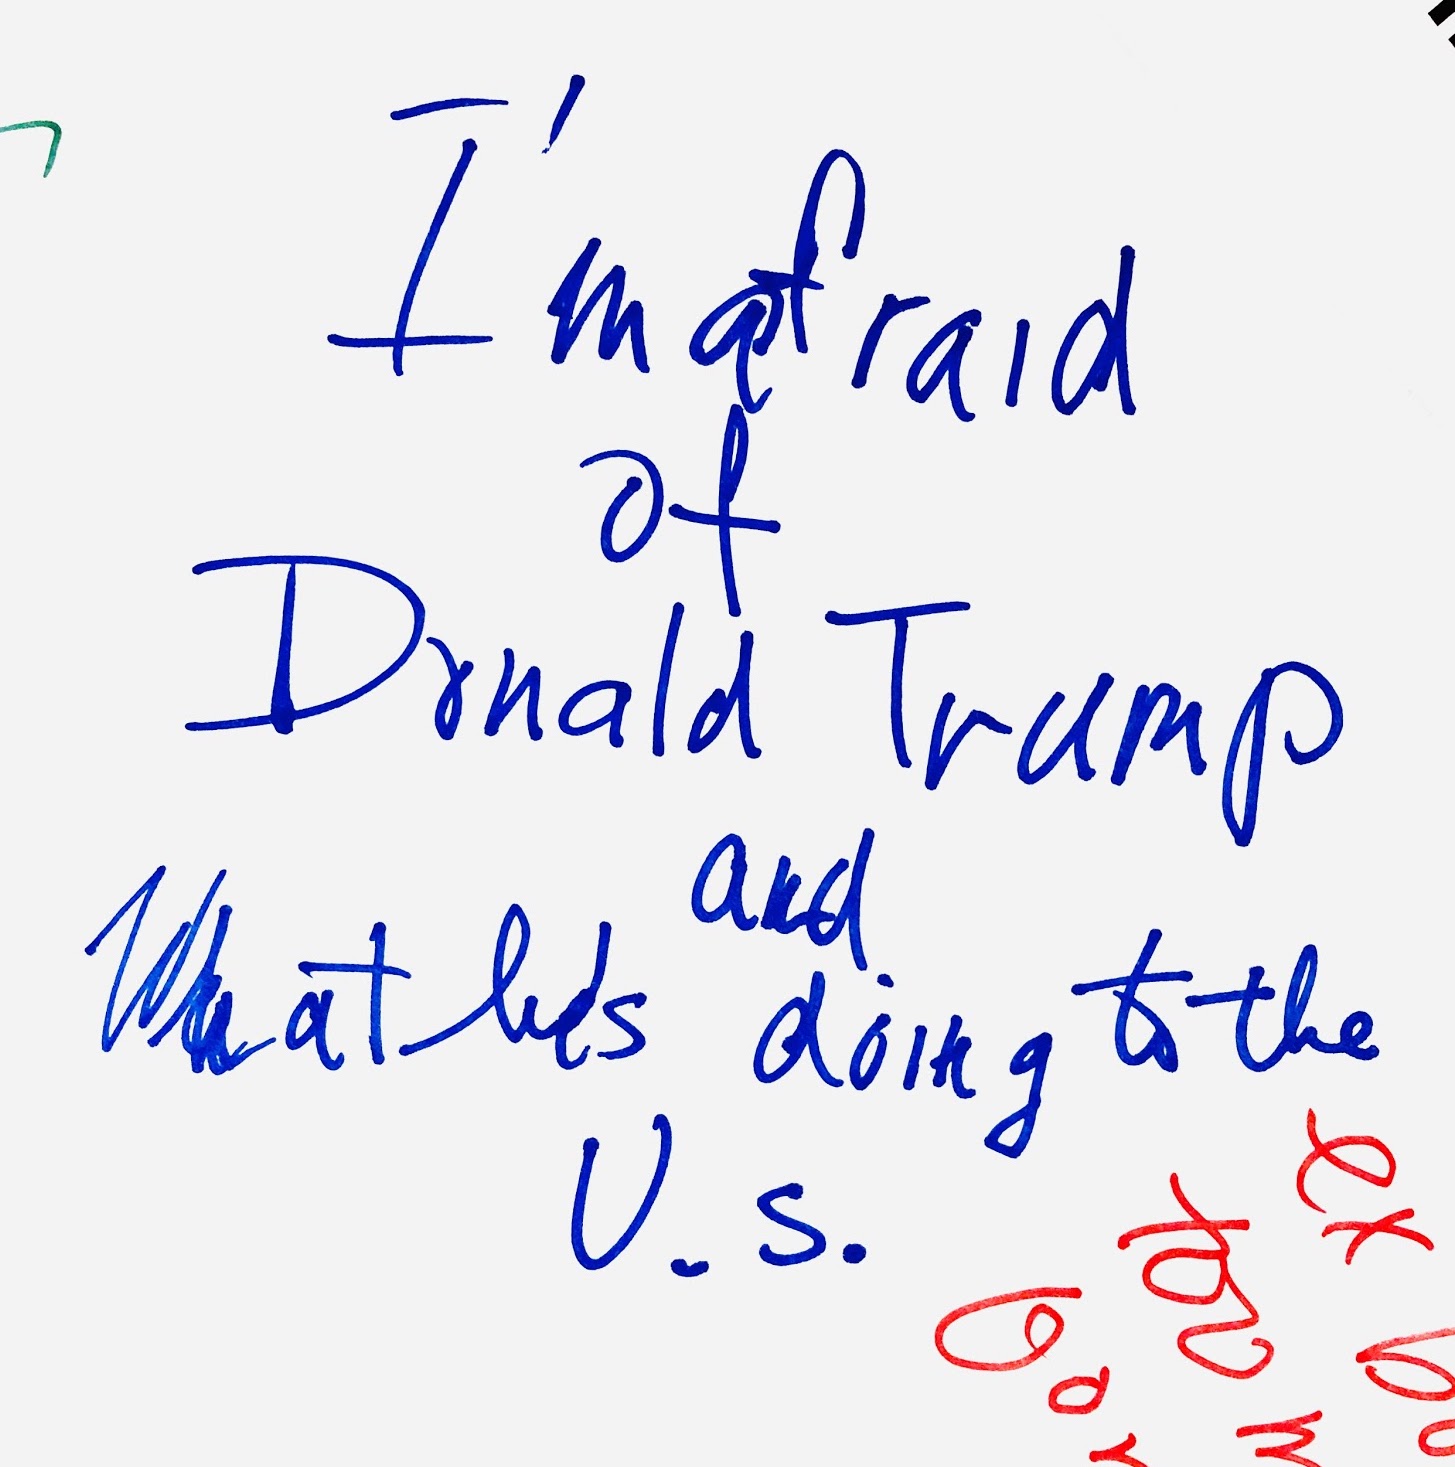 I'm afraid
of
Donald Trump
and
What he's doing to the
U.S.